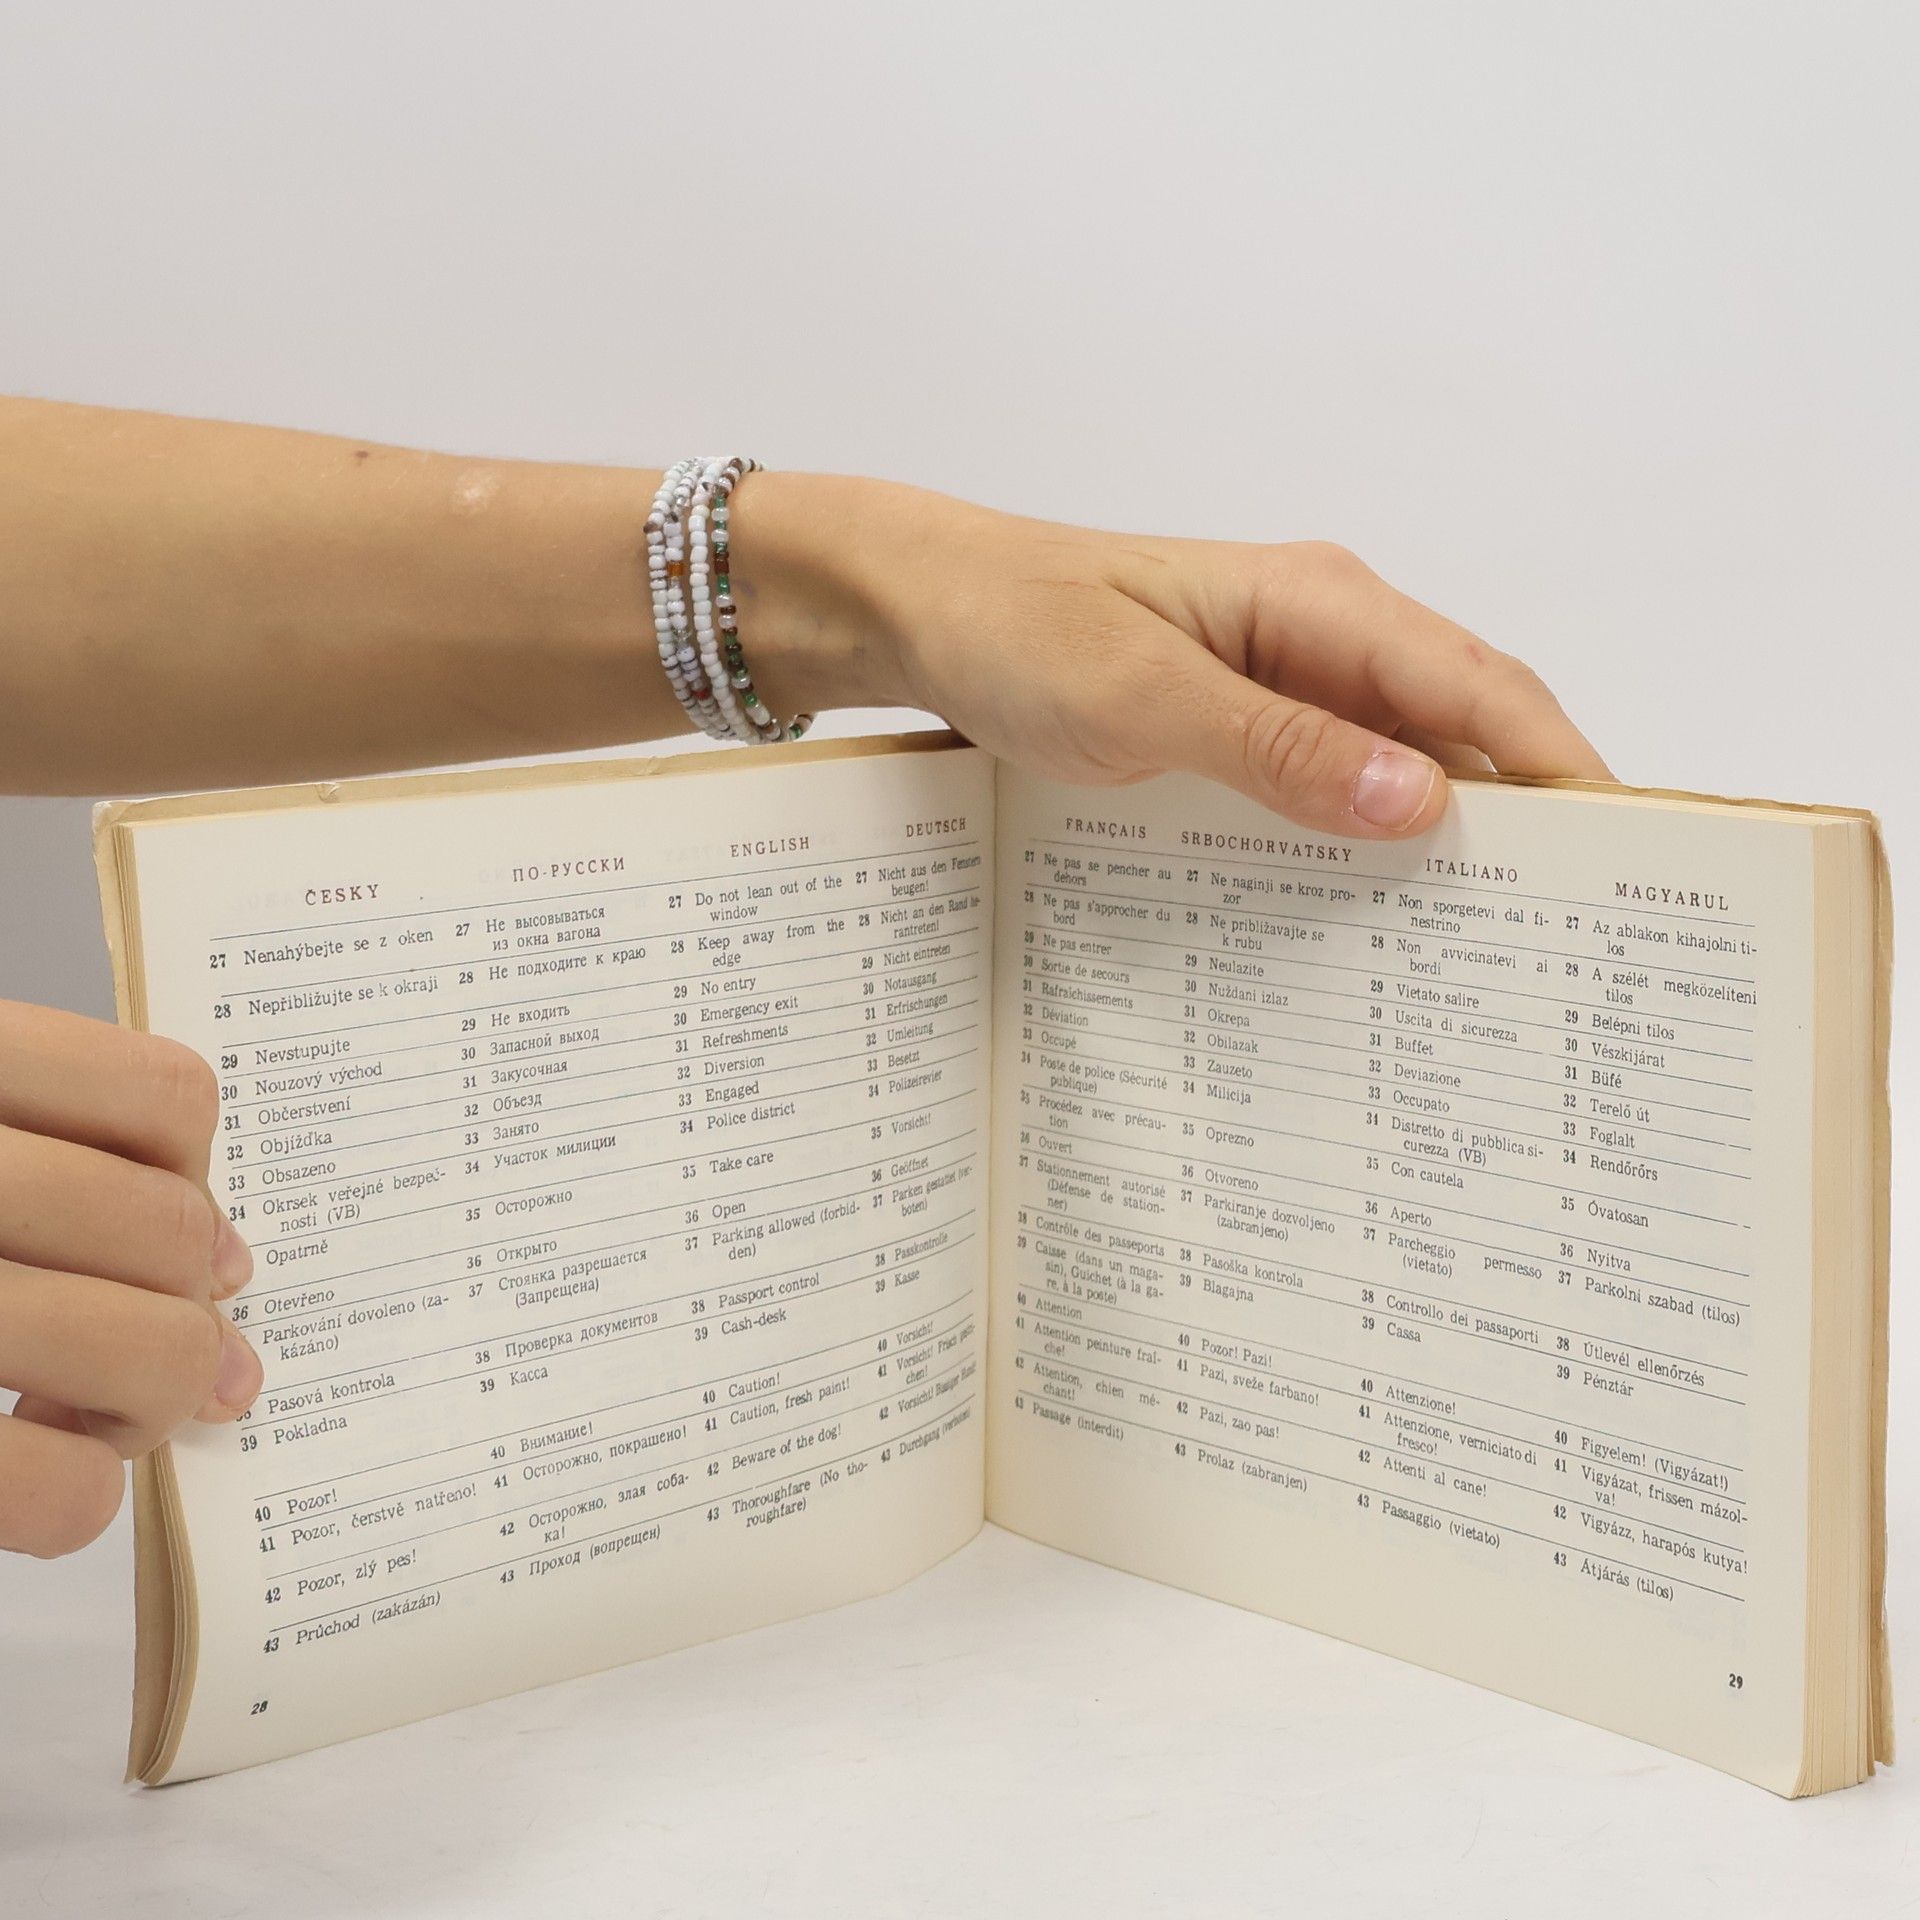 ČESKY
27 Nenahýbejte se z oken
28 Nepřibližujte se k okraji
29 Nevstupujte
30 Nouzový východ
31 Občerstvení
32 Objížďka
33 Obsazeno
34 Okrsek veřejné bezpeč-
nosti (VB)
Opatrně
36 Otevřeno
Parkování dovoleno (za-
kázáno)
Pasová kontrola
39 Pokladna
40 Pozor!
41 Pozor, čerstvě natřeno!
42 Pozor, zlý pes!
43 Průchod (zakázán)
28
ПО-РУССКИ
27 Не высовываться
из окна вагона
28 Не подходите к краю
29 Не входить
30 Запасной выход
31 Закусочная
32 Объезд
33 Занято
34 Участок милиции
35 Осторожно
36 Открыто
37 Стоянка разрешается
(Запрещена)
38 Проверка документов
39 Касса
40 Внимание!
41 Осторожно, покрашено!
42 Осторожно, злая соба-
ка!
43 Проход (вопрещен)
ENGLISH
27 Do not lean out of the
window
28 Keep away from the
edge
29 No entry
30 Emergency exit
31 Refreshments
32 Diversion
33 Engaged
34 Police district
35 Take care
36 Open
37 Parking allowed (forbid-
den)
38 Passport control
39 Cash-desk
40 Caution!
41 Caution, fresh paint!
42 Beware of the dog!
43 Thoroughfare (No tho-
roughfare)
DEUTSCH
27 Nicht aus den Fenstern
beugen!
28 Nicht an den Rand he-
rantreten!
29 Nicht eintreten
30 Notausgang
31 Erfrischungen
32 Umleitung
33 Besetzt
34 Polizeirevier
35 Vorsicht!
36 Geöffnet
37 Parken gestattet (ver-
boten)
38 Passkontrolle
39 Kasse
40 Vorsicht!
41 Vorsicht! Frisch gestri-
chen!
42 Vorsicht! Bissiger Hund!
43 Durchgang (verboten)
FRANÇAIS
27 Ne pas se pencher au
dehors
28 Ne pas s'approcher du
bord
29 Ne pas entrer
30 Sortie de secours
31 Rafraîchissements
32 Déviation
33 Occupé
34 Poste de police (Sécurité
publique)
35 Procédez avec précau-
tion
36 Ouvert
37 Stationnement autorisé
(Défense de station-
ner)
38 Contrôle des passeports
39 Caisse (dans un maga-
sin), Guichet (à la ga-
re, à la poste)
40 Attention
41 Attention peinture fraî-
che!
42 Attention, chien mé-
chant!
43 Passage (interdit)
SRBOCHORVATSKY
27 Ne naginji se kroz pro-
zor
28 Ne približavajte se
k rubu
29 Neulazite
30 Nuždani izlaz
31 Okrepa
32 Obilazak
33 Zauzeto
34 Milicija
35 Oprezno
36 Otvoreno
37 Parkiranje dozvoljeno
(zabranjeno)
38 Pasoška kontrola
39 Blagajna
40 Pozor! Pazi!
41 Pazi, sveže farbano!
42 Pazi, zao pas!
43 Prolaz (zabranjen)
ITALIANO
27 Non sporgetevi dal fi-
nestrino
28 Non avvicinatevi ai
bordi
29 Vietato salire
30 Uscita di sicurezza
31 Buffet
32 Deviazione
33 Occupato
34 Distretto di pubblica si-
curezza (VB)
35 Con cautela
36 Aperto
37 Parcheggio permesso
(vietato)
38 Controllo dei passaporti
39 Cassa
40 Attenzione!
41 Attenzione, verniciato di
fresco!
42 Attenti al cane!
43 Passaggio (vietato)
MAGYARUL
27 Az ablakon kihajolni ti-
los
28 A szélét megközelíteni
tilos
29 Belépni tilos
30 Vészkijárat
31 Büfé
32 Terelő út
33 Foglalt
34 Rendőrőrs
35 Óvatosan
36 Nyitva
37 Parkolni szabad (tilos)
38 Útlevél ellenőrzés
39 Pénztár
40 Figyelem! (Vigyázat!)
41 Vigyázat, frissen mázol-
va!
42 Vigyázz, harapós kutya!
43 Átjárás (tilos)
29